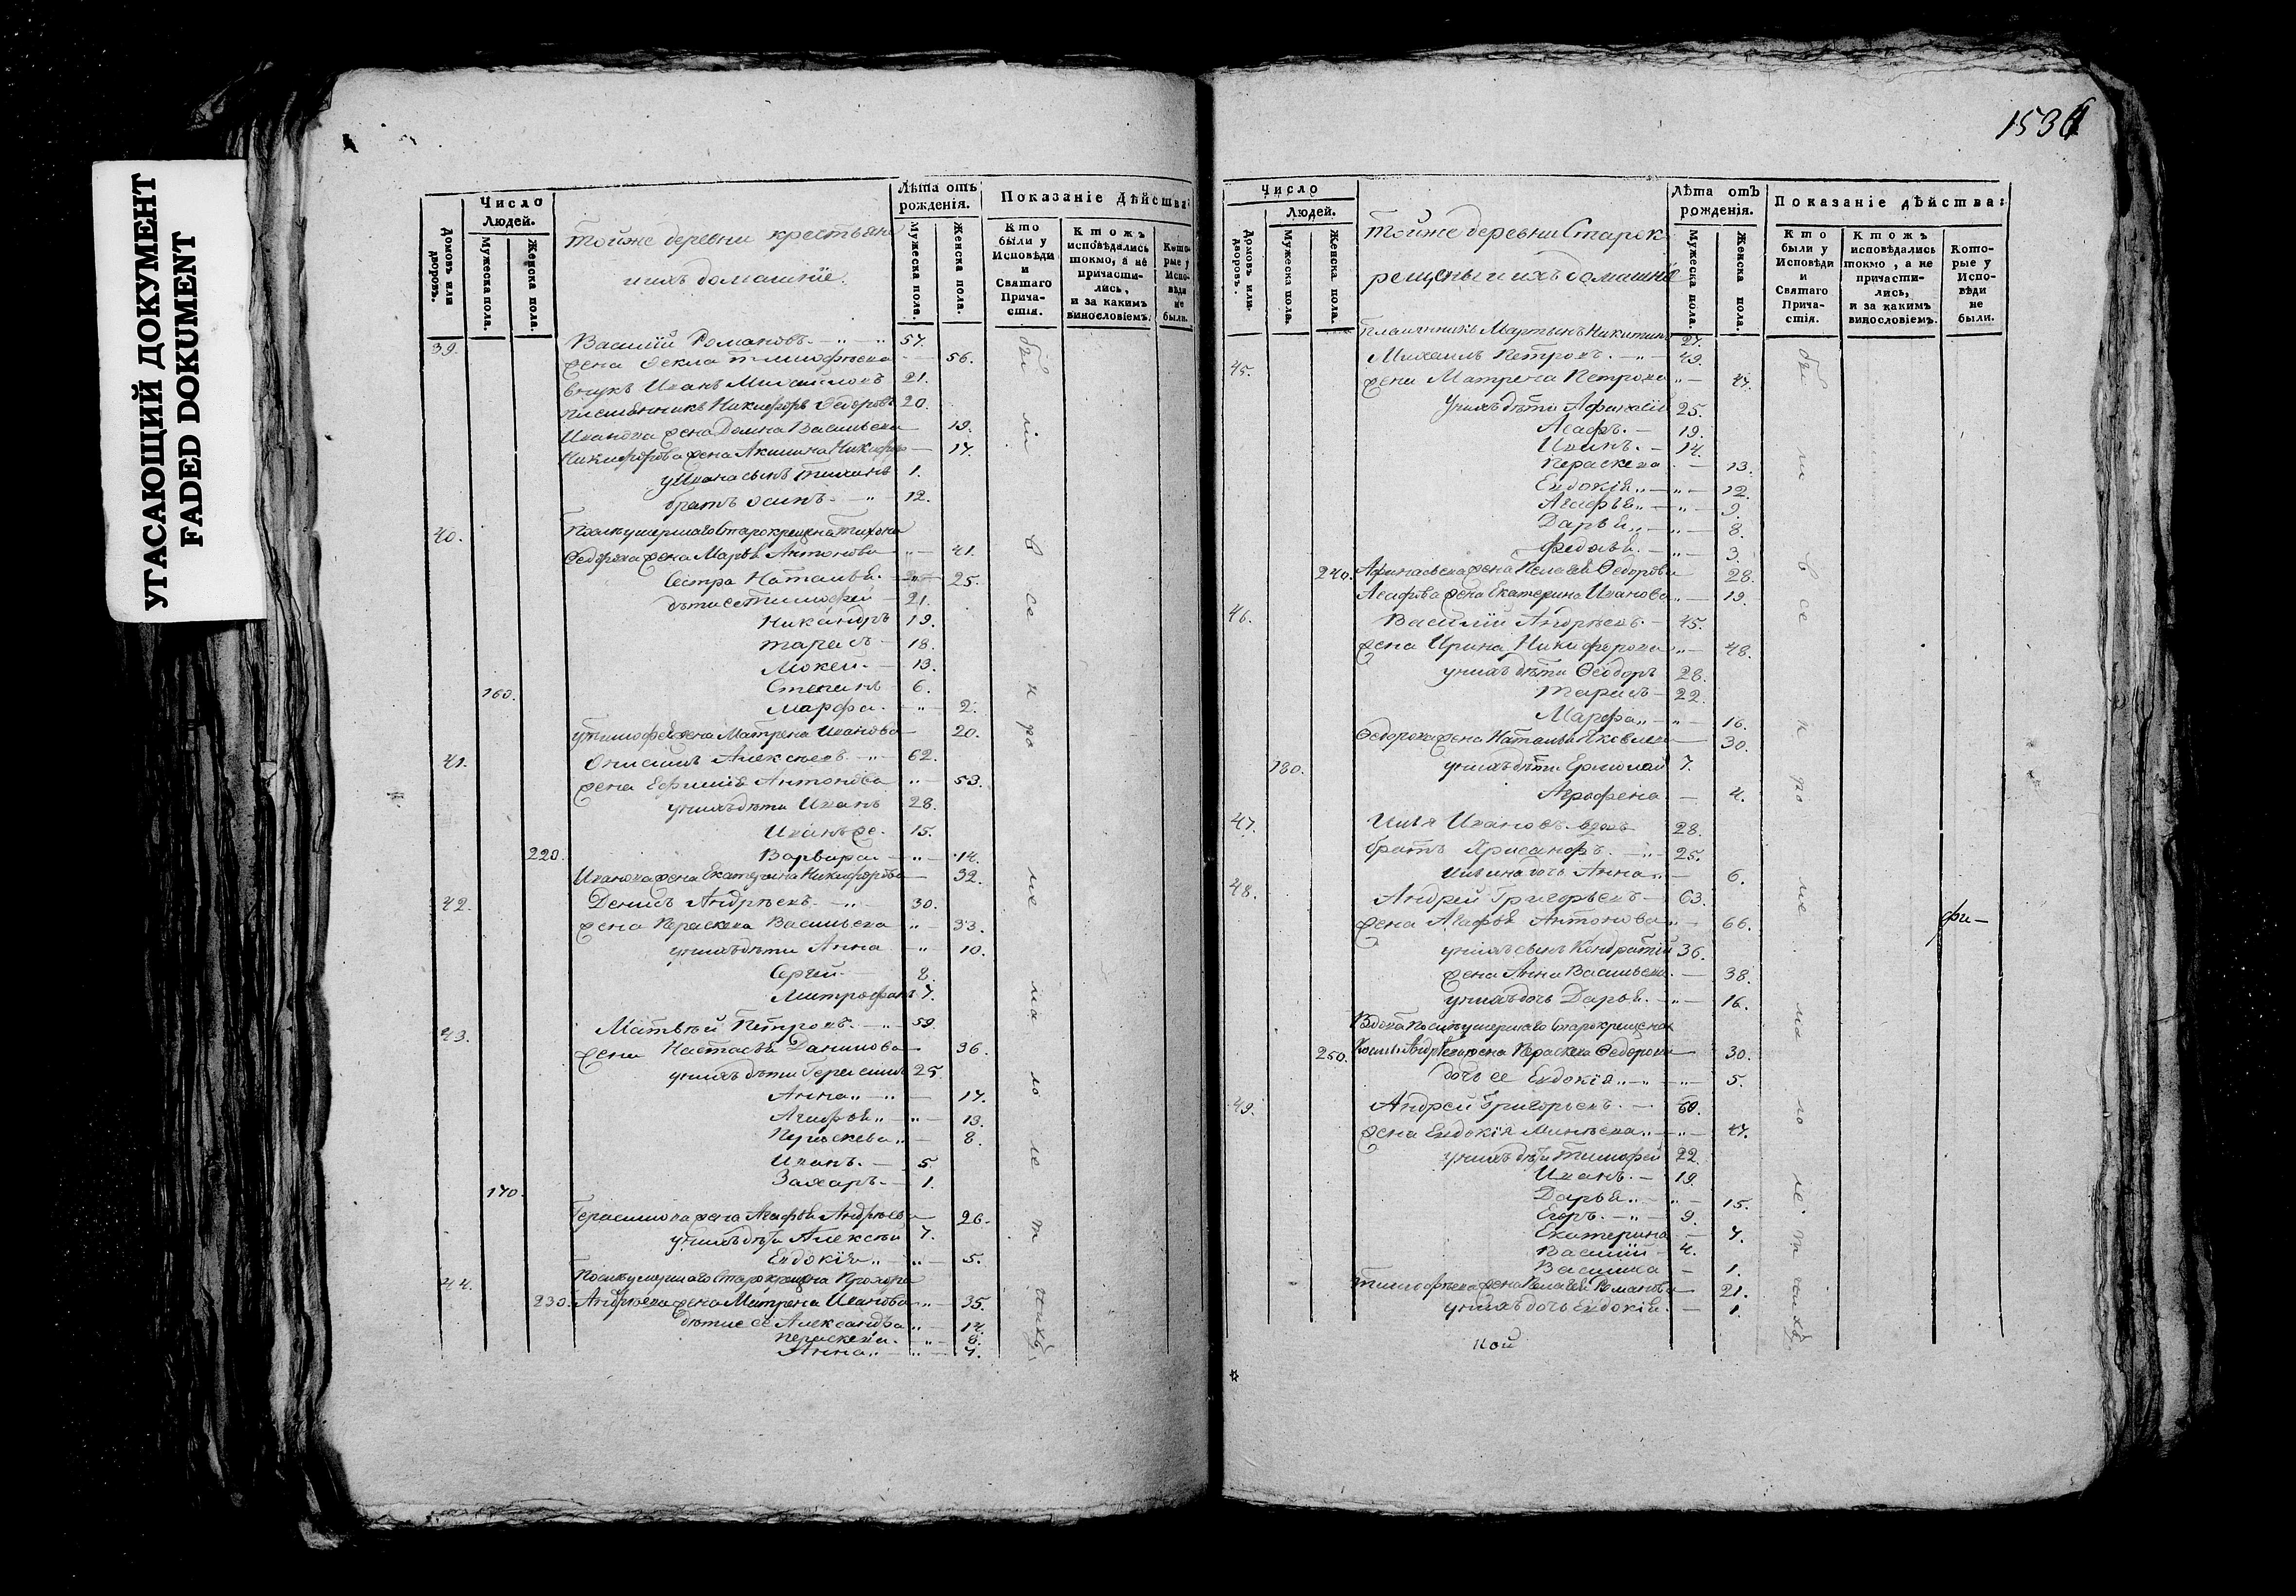 УГАСАЮЩИЙ ДОКУМЕНТ
FADED DOKUMENT
Домовъ или дворовъ.
Число
Людей.
Мужеска пола.
Женска пола.
тойже деревни крестьяне
и ихъ домашнїе
Лѣта отъ
рожденїя.
Мужеска пола.
Женска пола.
Показанїе дѣйства:
Кто
были у
Исповѣди
и
Святаго
Прича-
стїя.
Ктожъ
исповѣдались
токмо, а не
причасти-
лись,
и за какимъ
винословїемъ.
Кото-
рые у
Испо-
вѣди
не
были.
39. Василїй Романовъ 57.
жена Фекла Тимофѣева 56.
внукъ Иванъ Михайловъ 21.
племянникъ Никифоръ Ѳедоровъ 20.
Иванова жена Домна Васильева 19.
Никифорова жена Акилина Никифор 17.
у Ивана сынъ Тихонъ 1.
братъ Осипъ 12.
40. Послѣ умершаго Старокрещена Тихона
Ѳедорова жена Марья Антонова 41.
Сестра Наталья 25.
дѣти ее Тимофей 21.
Никандръ 19.
Тарасъ 18.
Мокей 13.
160. Степанъ 6.
Марфа 2.
у Тимофея жена Матрена Иванова 20.
41. Онисимъ Алексѣевъ 62.
жена Ефимїя Антонова 53.
у нихъ дѣти Иванъ 28.
Иванъ же 15.
220. Варвара 14.
Иванова жена Екатерина Никифорова 32.
42. Денисъ Андрѣевъ 30.
жена Параскева Васильева 33.
у нихъ дѣти Анна 10.
Сергей 8.
Митрофанъ 7.
43. Матвѣй Петровъ 59.
жена Настасья Данилова 36.
у нихъ дѣти Герасимъ 25.
Анна 17.
Агафья 13.
Параскева 8.
Иванъ 5.
170. Захаръ 1.
Герасимова жена Агафья Андрѣева 26.
у нихъ дѣти Алексѣй 7.
Евдокїя 5.
44. Послѣ умершаго Старокрещена Прохора
230. Андрѣева жена Матрена Иванова 35.
дѣти ее Александра 14.
Параскева 8.
Анна 4.
бы
ли
в
се
к
ро
ме
ма
ло
ле
т
нихъ
1536
Домовъ или дворовъ.
Число
Людей.
Мужеска пола.
Женска пола.
тойже деревни Старок
рещены и ихъ домашнїе
Лѣта отъ
рожденїя.
Мужеска пола.
Женска пола.
Показанїе дѣйства:
Кто
были у
Исповѣди
и
Святаго
Прича-
стїя.
Ктожъ
исповѣдались
токмо, а не
причасти-
лись,
и за какимъ
винословїемъ.
Кото-
рые у
Испо-
вѣди
не
были.
племянникъ Мартынъ Никитинъ 27.
45. Михаилъ Петровъ 49.
жена Матрена Петрова 47.
у нихъ дѣти Афанасїй 25.
Асафъ 19.
Иванъ 14.
Параскева 13.
Евдокїя 12.
Агафья 9.
Дарья 8.
Федосья 3.
240. Афанасьева жена Пелагея Ѳедорова 28.
Асафова жена Екатерина Иванова 19.
46. Василїй Андрѣевъ 45.
жена Ирина Никифорова 48.
у нихъ дѣти Ѳеодоръ 28.
Тарасъ 22.
Марфа 16.
Ѳедорова жена Наталья Яковлева 30.
180. у нихъ дѣти Ермолай 7.
Аграфена 4.
47. Илья Ивановъ 28.
братъ Хрисанфъ 25.
Ильина дочь Анна 6.
48. Андрей Григорьевъ 63.
жена Агафья Антонова 66.
у нихъ сынъ Кондратїй 36.
жена Анна Васильева 38.
у нихъ дочь Дарья 16.
Вдова послѣ умершаго Старокрещена
250. жена Параскева Ѳедорова 30.
дочь ее Евдокїя 5.
49. Андрей Григорьевъ 60.
жена Евдокїя Минѣева 47.
у нихъ дѣти Тимофей 22.
Иванъ 19.
Дарья 15.
Егоръ 9.
Екатерина 7.
Василїй 4.
Василиса 1.
Тимофѣева жена Пелагея Романова 21.
у нихъ дочь Евдокїя 1.
бы
ли
в
се
к
ро
ме
ма
ло
ле
т
нихъ
фи—
ной